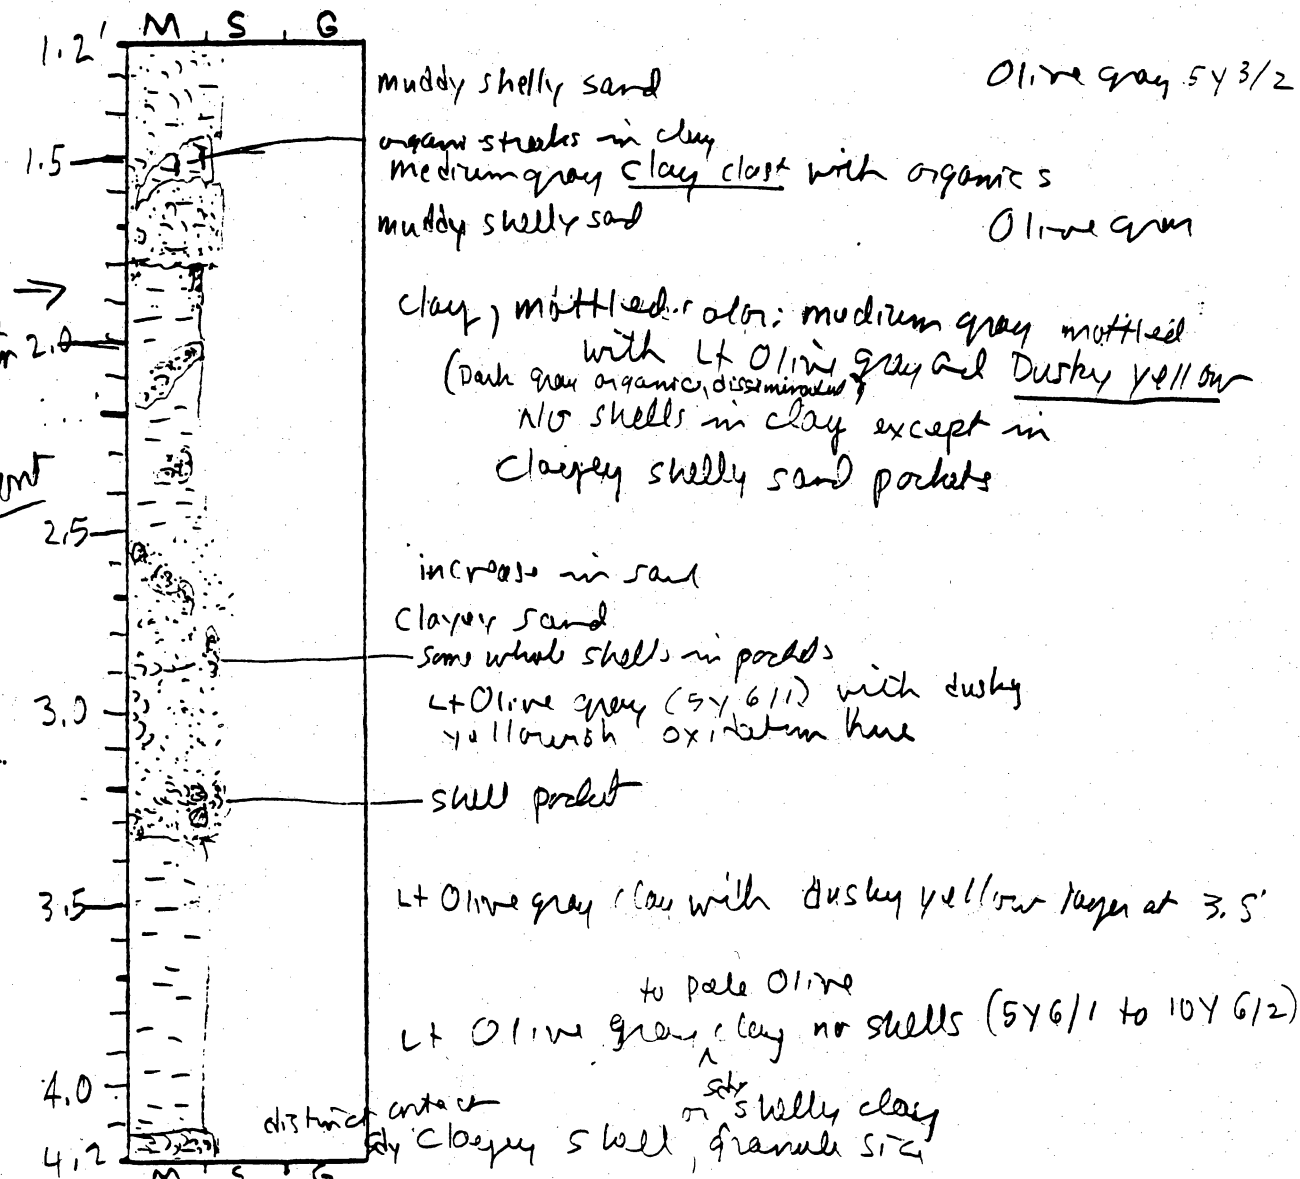 M S G
1.2'
muddy shelly sand
Olive gray 5Y 3/2
organic streaks in clay
1.5
medium gray clay clast with organics
muddy shelly sand
Olive gray
clay, mottled color: medium gray mottled
2.0
with Lt Olive gray and Dusky yellow
(Dark gray organics, disseminated)
No shells in clay except in
clayey shelly sand pockets
2.5
increase in sand
Clayey sand
some whole shells in pockets
Lt Olive gray (5Y 6/1) with dusky
3.0
yellowish oxidation hue
shell pocket
3.5
Lt Olive gray clay with dusky yellow layer at 3.5'
to pale Olive
Lt Olive gray ^ clay no shells (5Y6/1 to 10Y 6/2)
4.0
distinct contact
or sdy shelly clay
4.2
sdy Clayey shell, granule size
M S G